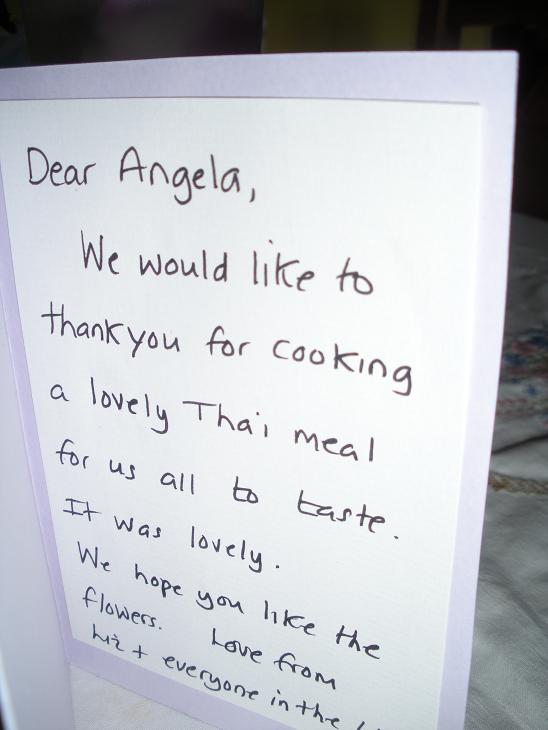 Dear Angela,
We would like to
thankyou for cooking
a lovely Thai meal
for us all to taste.
It was lovely.
We hope you like the
flowers. Love from
Liz + everyone in the